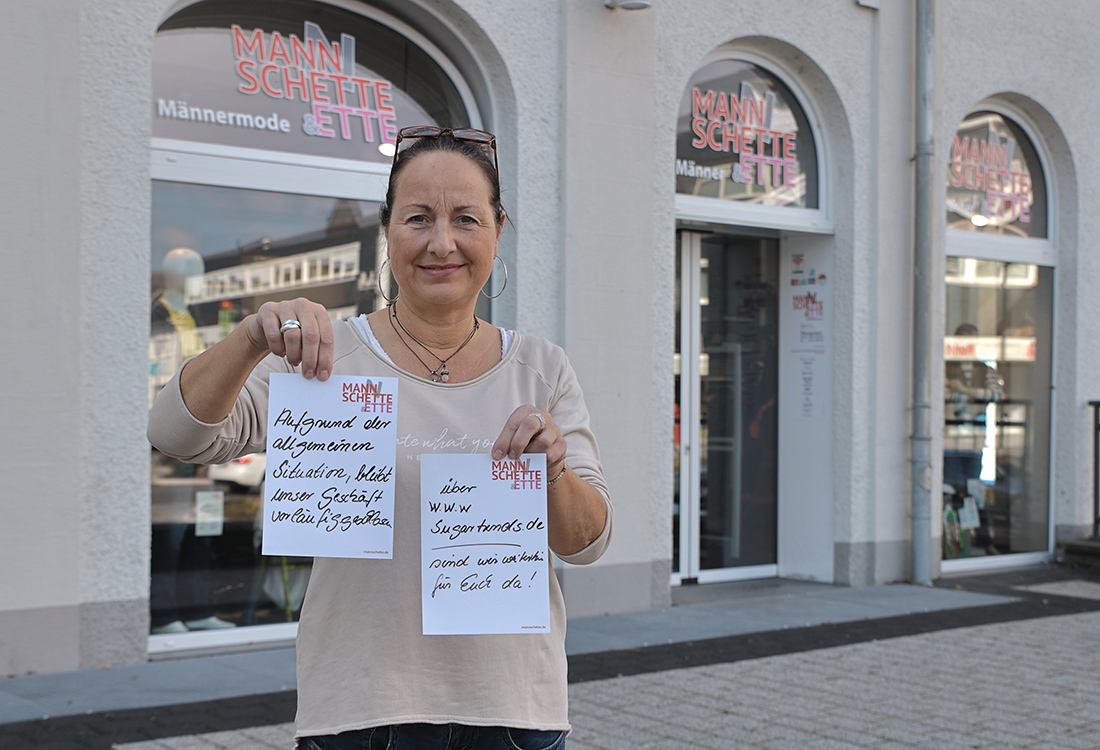 MANN
SCHETTE
Männermode & ETTE
MANN
SCHETTE
Männer & ETTE
MANN
SCHETTE
& ETTE
MANN
SCHETTE
& ETTE
Aufgrund der
allgemeinen
Situation, bleibt
unser Geschäft
vorläufig geschlossen
mannschette.de
MANN
SCHETTE
& ETTE
über
w.w.w
Sugartrends.de
sind wir weiterhin
für Euch da!
mannschette.de
what you
MANN
SCHETTE